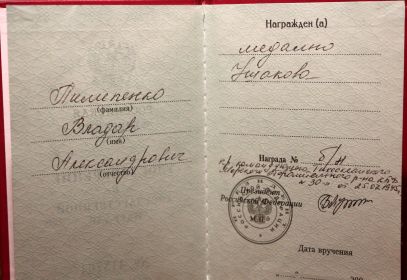 Пилипенко
(фамилия)
Владар
(имя)
Александрович
(отчество)
Награжден (а)
медалью
Ушакова
Награда № б/н
от 25.02.1995г
Президент
Российской Федерации
М.П.
Дата вручения
200